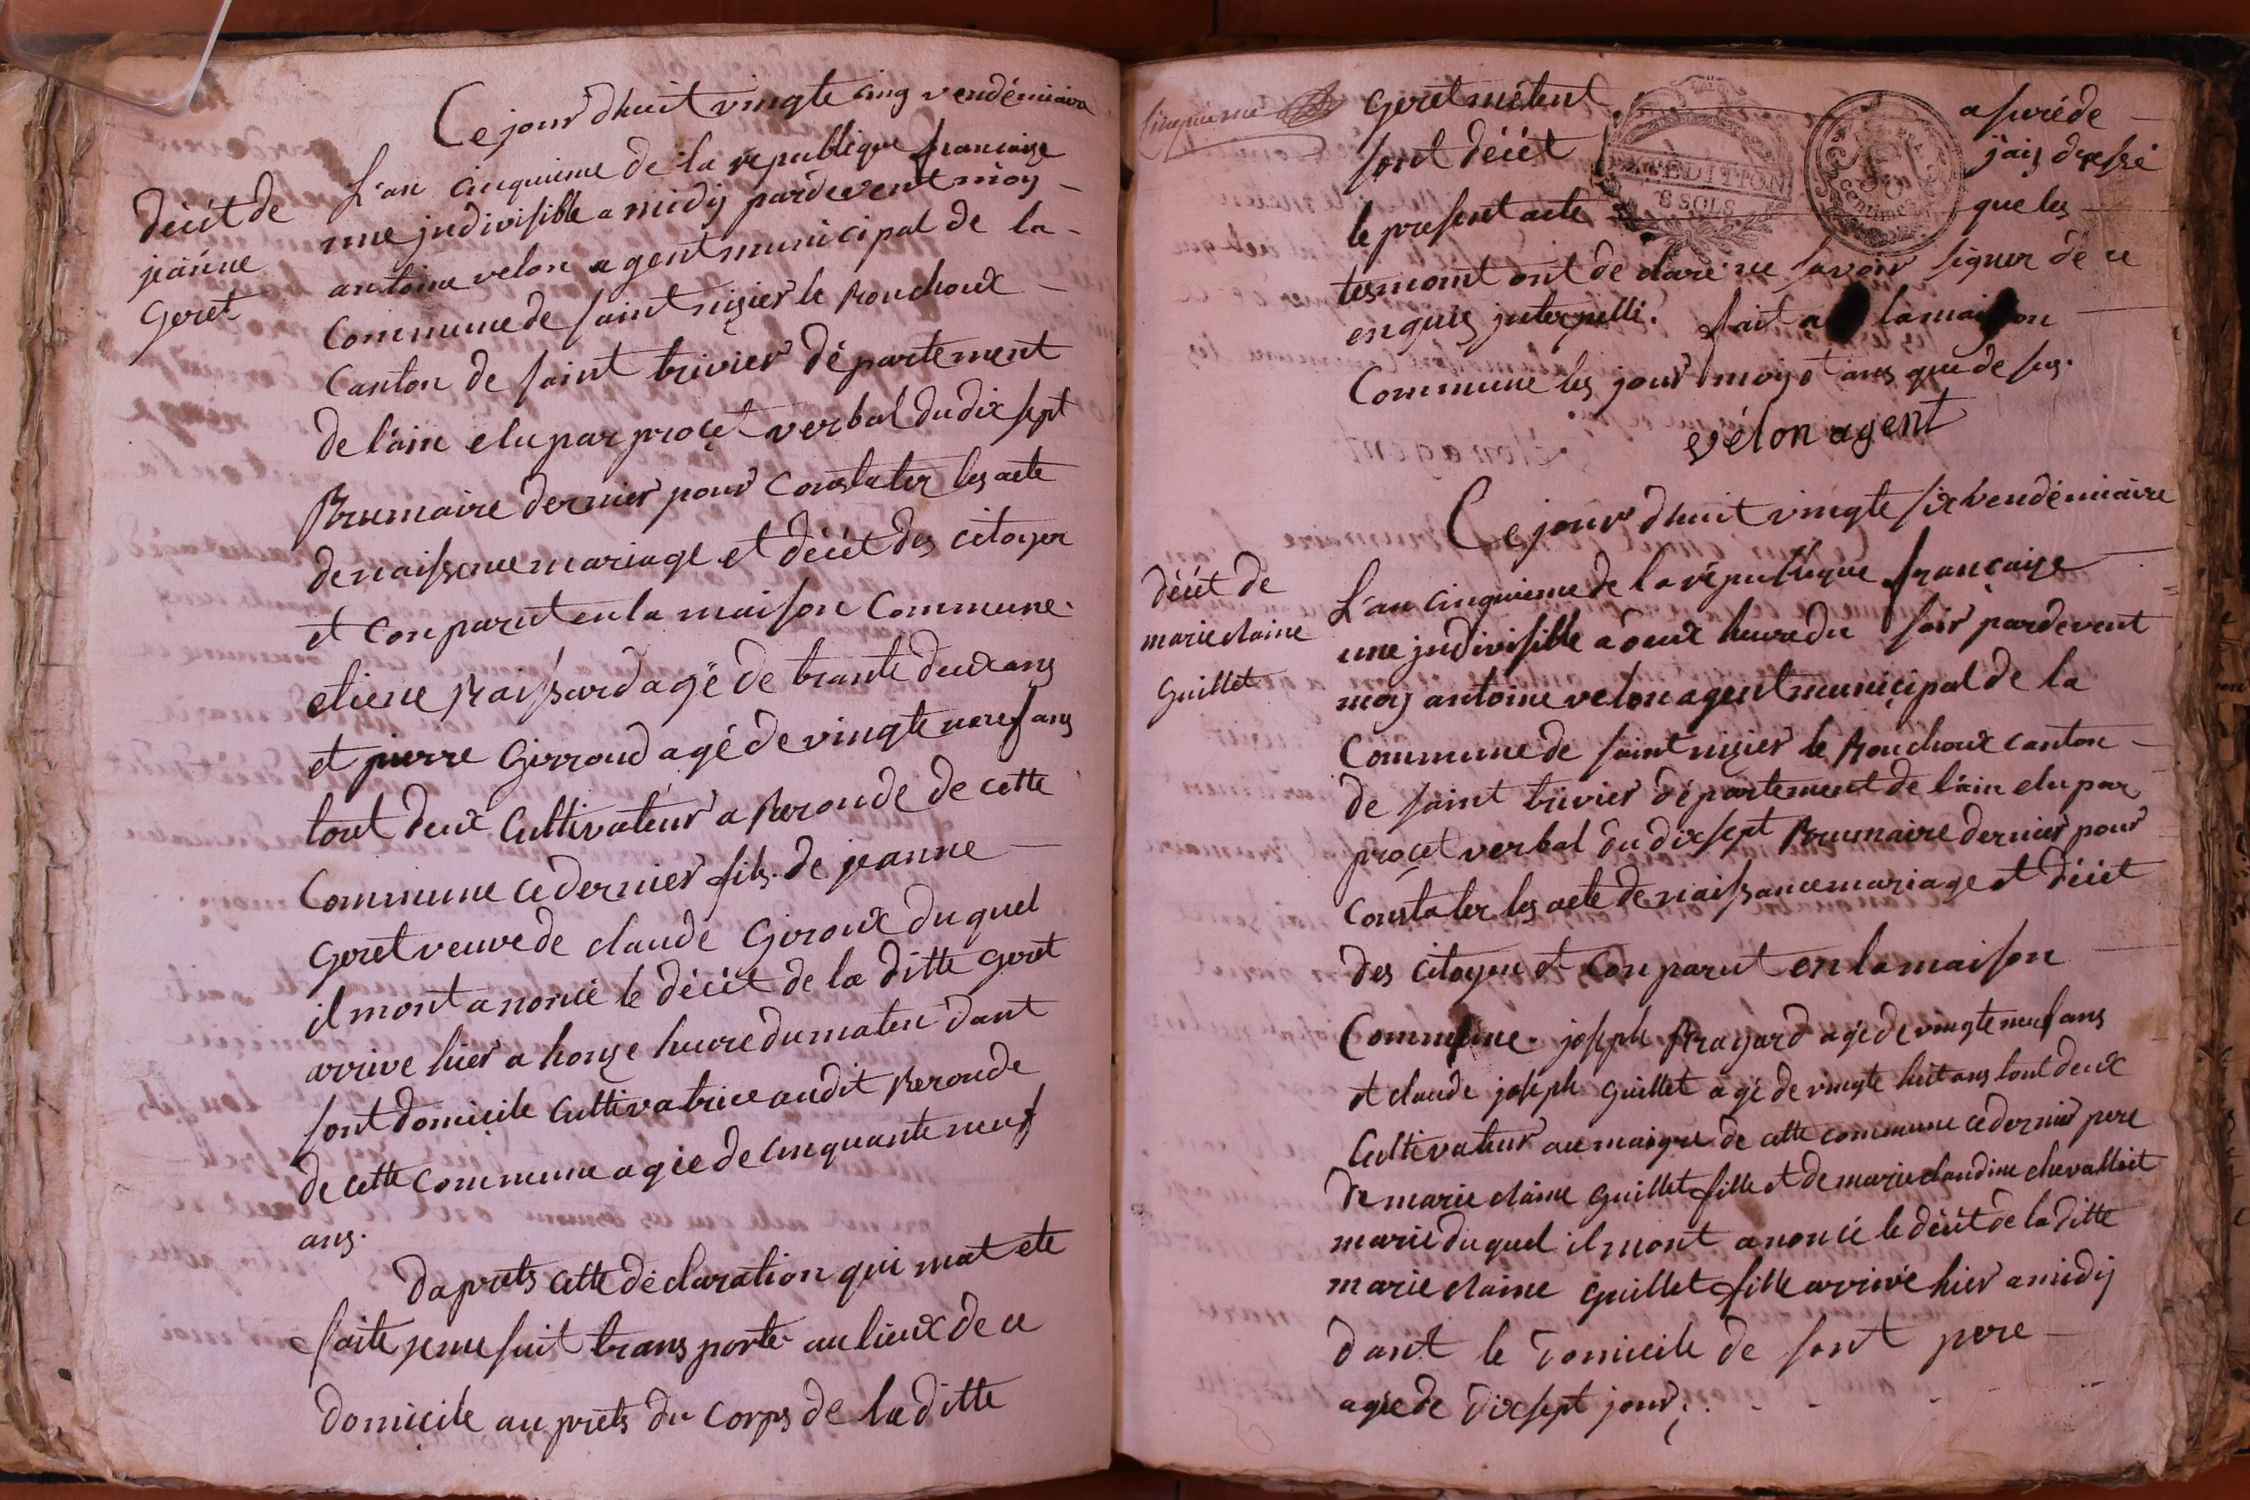 Ce jour dhuit vingte cinq vendémiaire
L'an cinquieme de la republique francaise
une jndivisible a midij pardevent moy
antoine velon agent municipal de la
Commune de saint nizier le Bouchoux
Canton de saint trivier département
de l'ain elu par procet verbal du dix sept
Brumaire dernier pour constater les acte
de naissance mariage et décét des citoyen
et conparut en la maison commune
etiene Raissard agé de trante deux ans
et pierre Girroud agé de vingte neuf ans
tout deux Cultivateur a Beronde de cette
Commune ce dernier fils de jeanne
Geret veuve de claude Giroux du quel
il mont anoncé le décét de la ditte Geret
arrive hier a honze heure du maten dant
sont domicile Cultivatrice audit Beronde
de cette commune agée de cinquante neuf
ans.
daprets cette déclaration qui mat ete
faite je me suit transporte au lieux de ce
domicile au prets du corps de la ditte
décét de
jeanne
Geret
cinquieme
Geret métent asuré de
sont décét j'ais dressé
le present acte que les
tesmoint ont de claré ne savoir signer de ce
enquis jnterpellé. fait a la maison
Commune les jour mois et ans que de sus.
vélon agent
EXPÉDITION
8 SOLS
Centimes
Ce jour dhuit vingte six vendémiaire
L'an cinquieme de la république francaise
une jndivisible a deux heure du soir pardevent
moy antoine velon agent municipal de la
Commune de saint nizier le Bouchoux canton
de saint trivier département de l'ain elu par
procet verbal du dix sept Brumaire dernier pour
Constater les acte de naissance mariage et décét
des citoyen et Conparut en la maison
Commune. joseph Brayard agé de vingte neuf ans
et claude joseph Guillet agé de vingte huit ans tout deux
Cultivateur au maigre de cette commune ce dernier pere
de marie claine Guillet fille et de marie claudine chevallieit
marié du quel il mont anoncé le décét de la ditte
marie claine Guillet fille arrivé hier a midij
dant le domicile de sont pere
agée de dix sept jour.
décét de
marie claine
Guillet